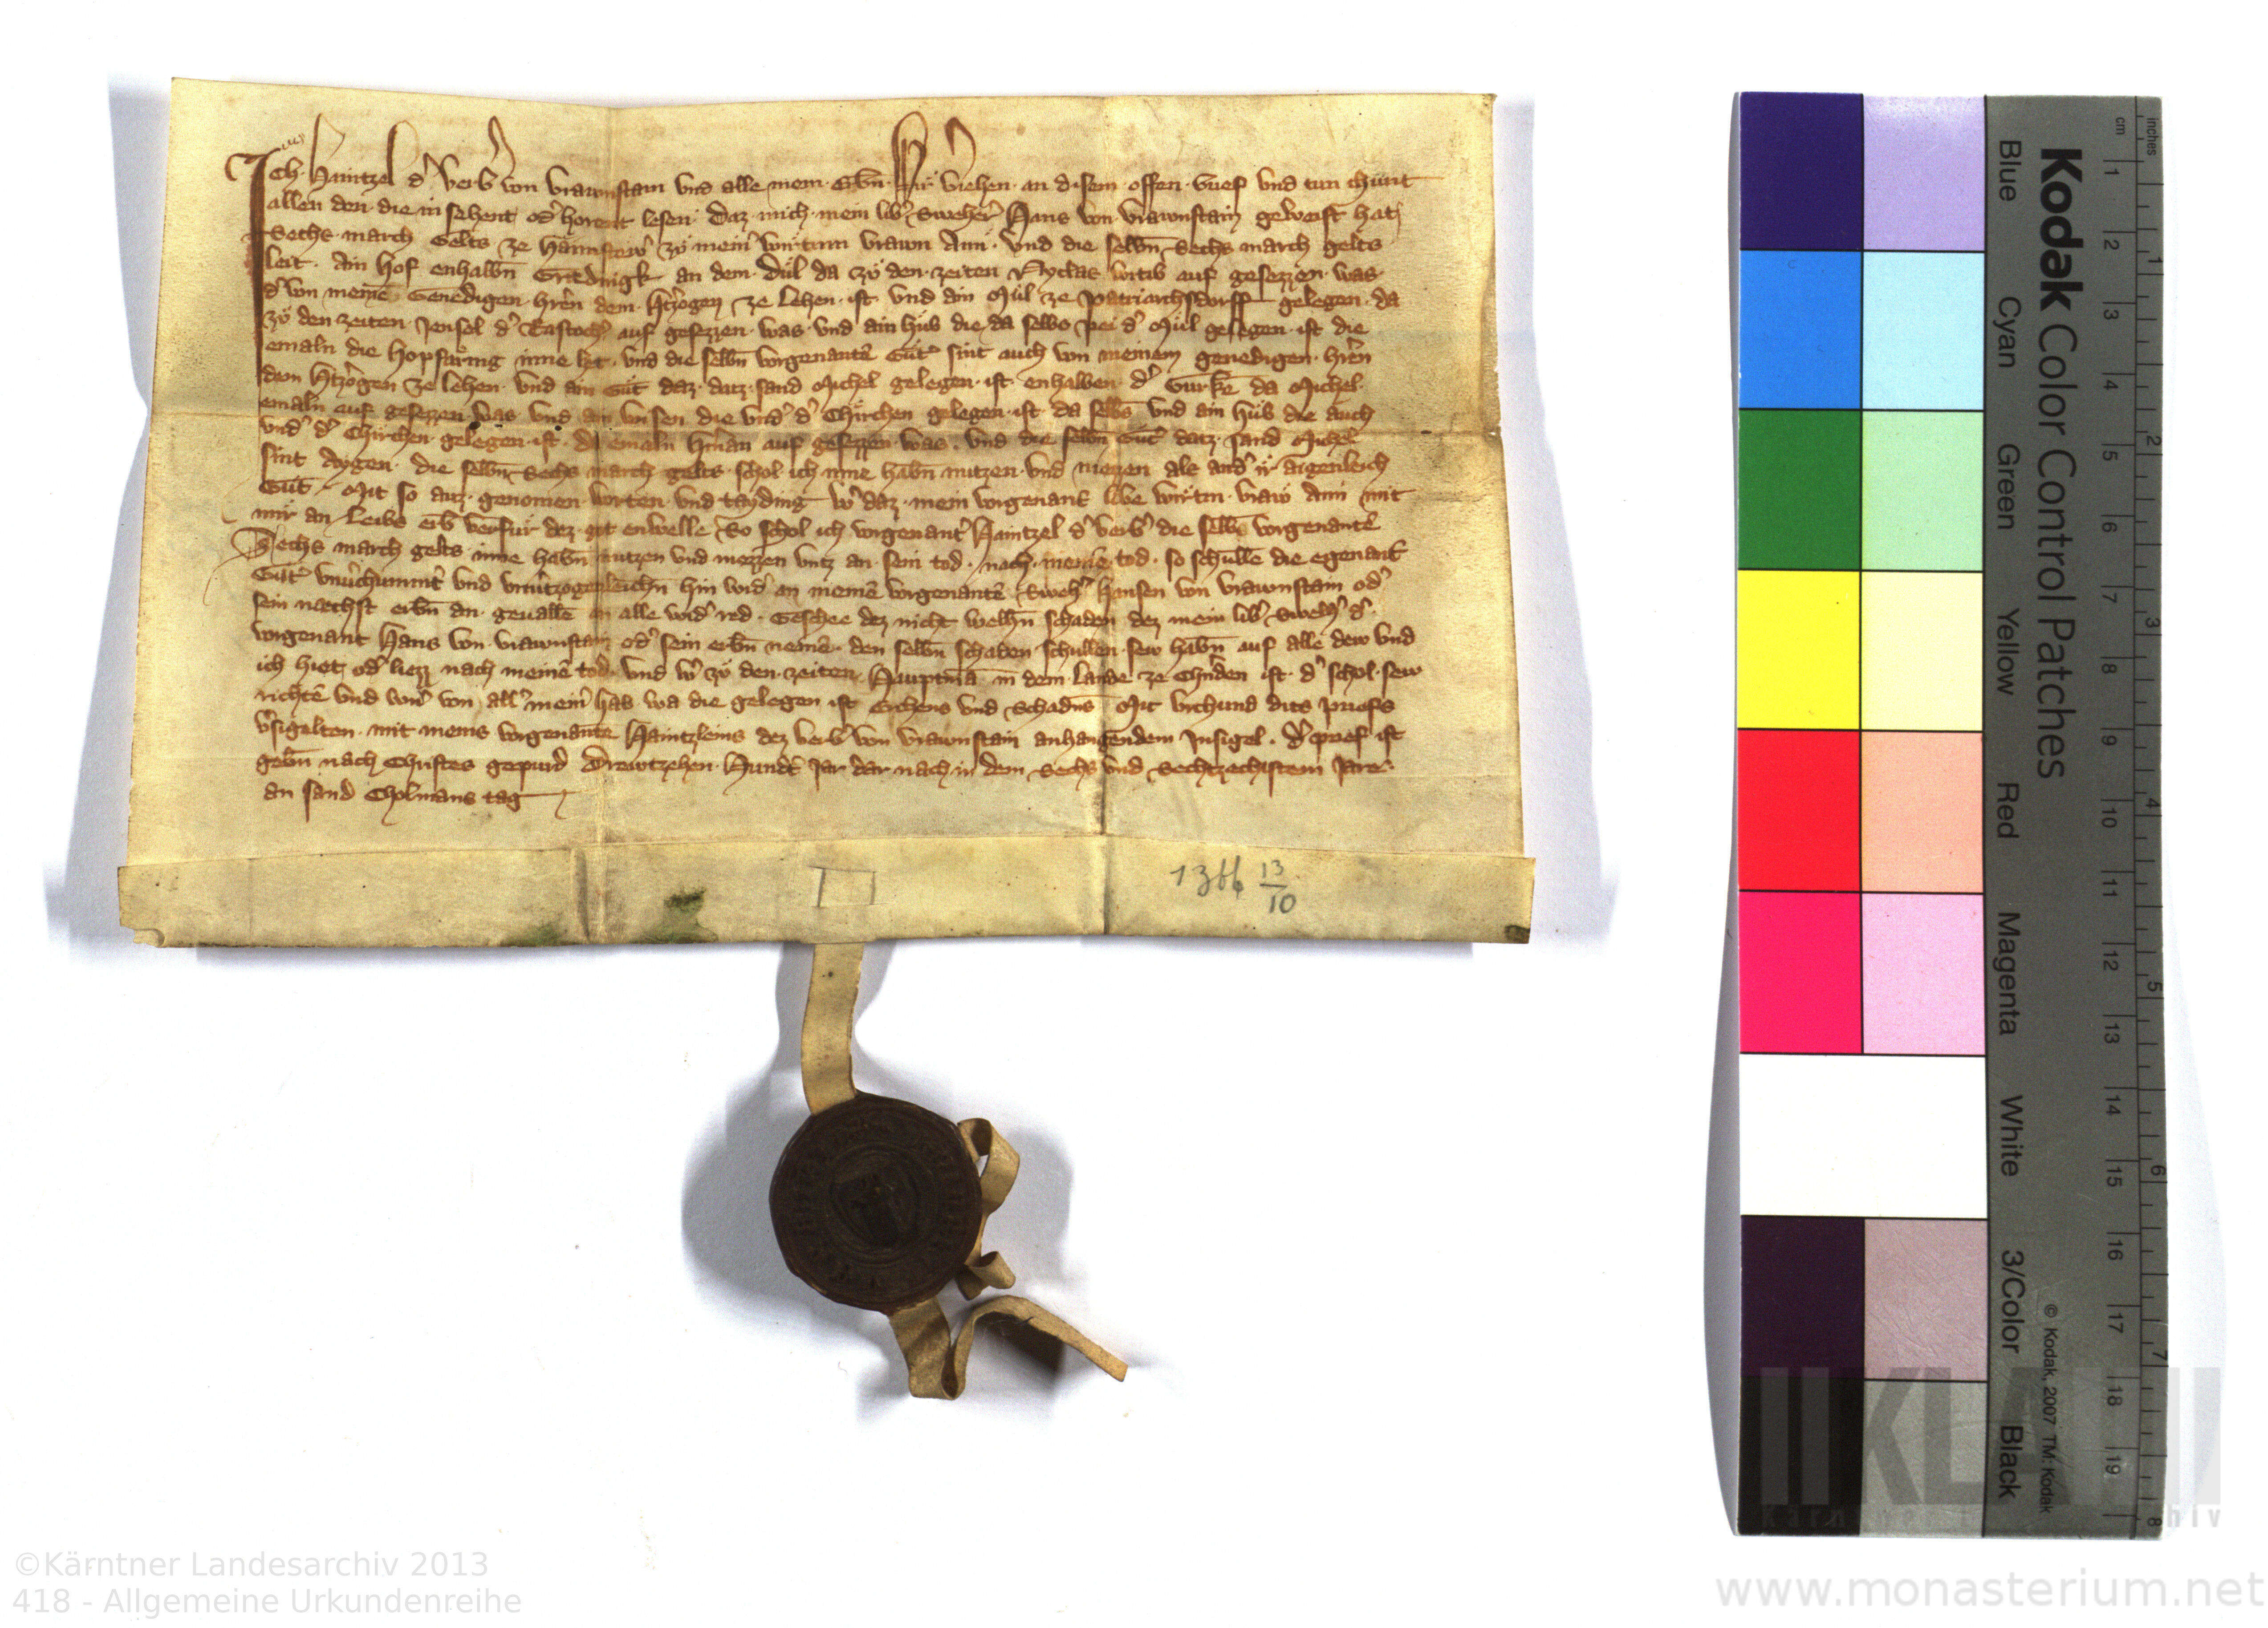 Ich Haintzel d' verb' von vrawnstain vnd alle mein Erbn Wir v'iehen an disem offen brief vnd tun chunt
allen den die in sehent od' horent lesen Daz mich mein lib' Sweher Hans von vrawnstain geweist hat
Sechs march Gelts ze zů mein' wirtinn vrawn Ann vnd die selbn Sechs march gelts
leit Ain hof enhalbn an dem Důl da zů den zeiten Nyclas witib auf gesezzen was
d' von meinē Genedigen hren dem Htzogen ze Lehen ist vnd ain Mül ze Patriarchsdorff gelegen da
zů den zeiten Jensel d' auf gesezzen was vnd ain hůb die da selbs pei d' Mül gelegen ist die
emaln die Hopfaring inne het vnd die selbn vorgenantē Gůt' sint auch von meinem genedigen hren
dem Htzogen ze lehen vnd ain Gůt daz datz sand Michel gelegen ist enhalben d' Gurkē da Michel
emaln auf gesezzen was vnd ain wisen die vnd' d' Chirchen gelegen ist da selbs vnd ain hůb die auch
vnd' d' Chirchen gelegen ist da emaln h'man auf gesezzen was vnd die selbn Gůt' datz sand Michel
sint Aygen die selbn Sechs march gelts schol ich inne habn nutzen vnd niezzen als and' ir aigenleich
Gůt Mit so auz genomen worten vnd tayding w' daz mein vorgenant libe wirtin vraw Ann mit
mir an Leibs erb verfůr dez got enwelle So schol ich vorgenant' Haintzel d' verb' die selbē vorgenantē
Sechs march gelts inne habn nutzen vnd niezzen vntz an sein tod nach meinē tod so schullē die egenant
Gůt' vnu'chummert vnd vnu'tzogenleichn hin wid' an meinē vorgenantē Sweh' Hansen von vrawnstain od'
sein nechst erbn an geuallē an alle wid' red Geschee dez nicht welhn schaden dez mein lib' Sweh' d'
vorgenant Hans von vrawnstain od' sein erbn nemē den selbn schaden schullen sew habn auf alle dew vnd
ich hiet od' liezz nach meinē tod vnd w' zů den zeiten Hauptmā in dem Lande ze Ch'nden ist d' schol sew
richtē vnd wern von all' mein' hab wa die gelegen ist vnd Schadns Mit vrchund dits priefs
v'sigelten mit meins vorgenantē Haintzleins dez verb' von vrawnstain anhangendem Insigel D' prief ist
gebn nach Christes gepurd Drewtzehen Hundt Jar dar nach in dem Sechs vnd Sechtzechistem Jare
an sand Cholmans tag
1366 13/10
Kodak Color Control Patches
Blue Cyan Green Yellow Red Magenta White 3/Color Black
© Kodak, 2007 TM: Kodak
cm 1 2 3 4 5 6 7 8 9 10 11 12 13 14 15 16 17 18 19
inches 1 2 3 4 5 6 7 8
KLA
©Kärntner Landesarchiv 2013
418 - Allgemeine Urkundenreihe
www.monasterium.net